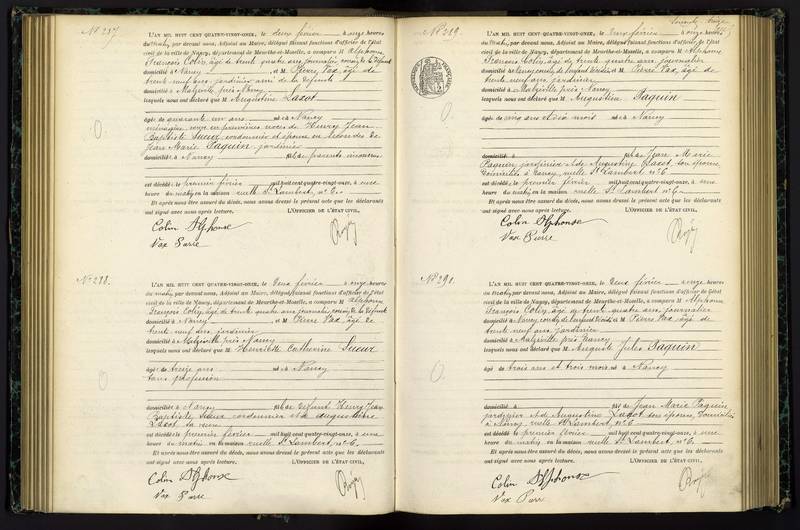 N° 287
L'AN MIL HUIT CENT QUATRE-VINGT-ONZE, le deux février à onze heures
du matin, par devant nous, Adjoint au Maire, délégué faisant fonctions d'officier de l'état
civil de la ville de Nancy, département de Meurthe-et-Moselle, a comparu M Alphonse
François Colin, âgé de trente quatre ans, journalier, cousin de la défunte
domicilié à Nancy et M Pierre Vax, âgé de
trente neuf ans, jardinier ami de la défunte
domicilié à Malzéville près Nancy
lesquels nous ont déclaré que M Augustine Lazot
âgée de quarante un ans né à Nancy
ménagère, veuve en premières noces de Henry Jean
Baptiste Sueur cordonnier et épouse en secondes de
Jean Marie Paquin jardinier
domiciliée à Nancy fille de parents inconnus
est décédée le premier février mil huit cent quatre-vingt-onze, à une
heure du matin, en la maison ruelle St Lambert, n° 6.
Et après nous être assuré du décès, nous avons dressé le présent acte que les déclarants
ont signé avec nous après lecture. L'OFFICIER DE L'ÉTAT CIVIL,
Colin Alphonse
Vax Pierre
N° 288.
L'AN MIL HUIT CENT QUATRE-VINGT-ONZE, le deux février à onze heures
du matin, par devant nous, Adjoint au Maire, délégué faisant fonctions d'officier de l'état
civil de la ville de Nancy, département de Meurthe-et-Moselle, a comparu M Alphonse
François Colin, âgé de trente quatre ans, journalier, cousin de la défunte
domicilié à Nancy et M Pierre Vax âgé de
trente neuf ans, jardinier
domicilié à Malzéville près Nancy
lesquels nous ont déclaré que M Henriette Catherine Sueur
âgée de treize ans née à Nancy
sans profession
domiciliée à Nancy fille de défunt Henry Jean
Baptiste Sueur cordonnier et de Augustine
Lazot sa veuve
est décédée le premier février mil huit cent quatre-vingt-onze, à une
heure du matin en la maison ruelle St Lambert, n° 6.
Et après nous être assuré du décès, nous avons dressé le présent acte que les déclarants
ont signé avec nous après lecture. L'OFFICIER DE L'ÉTAT CIVIL,
Colin Alphonse
Vax Pierre
N° 289.
L'AN MIL HUIT CENT QUATRE-VINGT-ONZE, le deux février à onze heures
du matin, par devant nous, Adjoint au Maire, délégué faisant fonctions d'officier de l'état
civil de la ville de Nancy, département de Meurthe-et-Moselle, a comparu M Alphonse
François Colin, âgé de trente quatre ans, journalier
domicilié à Nancy, et M Pierre Vax, âgé de
trente neuf ans, jardinier
domicilié à Malzéville près Nancy
lesquels nous ont déclaré que M Augustine Paquin
âgée de cinq ans et dix mois née à Nancy
domiciliée à fille de Jean Marie
Paquin, jardinier et de Augustine Lazot, son épouse,
domiciliés à Nancy, ruelle St Lambert n° 6
est décédée le premier février mil huit cent quatre-vingt-onze, à une
heure du matin, en la maison ruelle St Lambert n° 6.
Et après nous être assuré du décès, nous avons dressé le présent acte que les déclarants
ont signé avec nous après lecture. L'OFFICIER DE L'ÉTAT CIVIL,
Colin Alphonse
Vax Pierre
N° 290.
L'AN MIL HUIT CENT QUATRE-VINGT-ONZE, le deux février à onze heures
du matin, par devant nous, Adjoint au Maire, délégué faisant fonctions d'officier de l'état
civil de la ville de Nancy, département de Meurthe-et-Moselle, a comparu M Alphonse
François Colin, âgé de trente quatre ans, journalier
domicilié à Nancy, et M Pierre Vax âgé de
trente neuf ans, jardinier
domicilié à Malzéville près Nancy
lesquels nous ont déclaré que M Auguste Jules Paquin
âgé de trois ans et trois mois né à Nancy
domicilié à fils de Jean Marie Paquin
jardinier et de Augustine Lazot son épouse, domiciliés
à Nancy, ruelle St Lambert, n° 6
est décédé le premier février mil huit cent quatre-vingt-onze, à une
heure du matin, en la maison ruelle St Lambert, n° 6.
Et après nous être assuré du décès, nous avons dressé le présent acte que les déclarants
ont signé avec nous après lecture. L'OFFICIER DE L'ÉTAT CIVIL,
Colin Alphonse
Vax Pierre